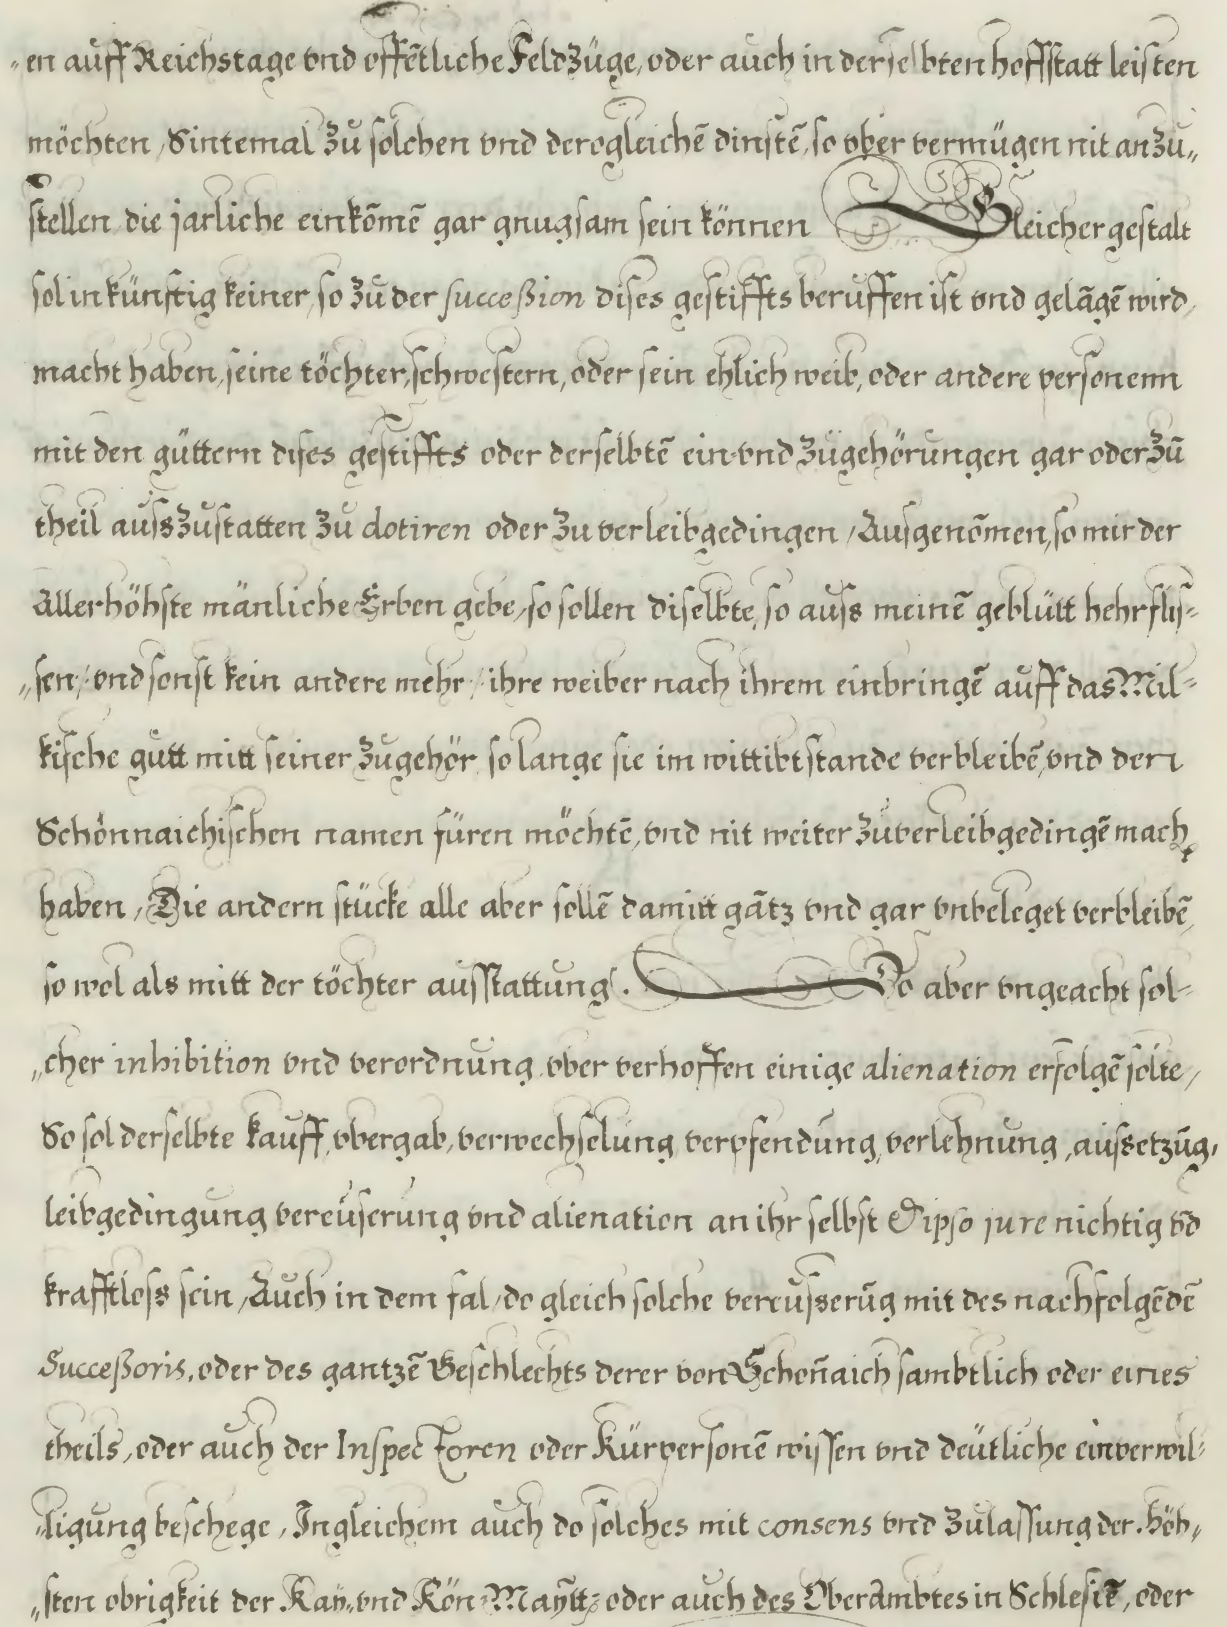 „en auff Reichstage vnd offētliche Feldzüge, oder auch in derselbten hoffstatt leisten
möchten, Sintemal zu solchen vnd derogleichē dinstē, so vber vermügen nit anzu„
stellen die jarliche einkōmē gar gnugsam sein können Gleicher gestalt
sol in künftig keiner, so zu der succeßion dises gestiffts beruffen ist vnd gelāgē wird,
macht haben, seine töchter, schwestern, oder sein ehlich weib, oder andere personenn
mit den güttern dises gestiffts oder derselbtē ein-vnd zugehörungen gar oder zū
theil ausszustatten zu dotiren oder zu verleibgedingen, Ausgenōmen, so mir der
Allerhöhste mänliche Erben gebe, so sollen diselbte, so auss meinē geblütt hehrflis-
„sen, vnd sonst kein andere mehr, ihre weiber nach ihrem einbringē auff das Mil-
kische gutt mitt seiner zugehör, so lange sie im wittibtstande verbleibē, vnd den
Schönnaichischen namen füren möchtē, vnd nit weiter zuverleibgedingē macht
haben, Die andern stücke alle aber sollē damitt gātz vnd gar vnbeleget verbleibē,
so wol als mitt der töchter ausstattung. Do aber vngeacht sol-
„cher inhibition vnd verordnung vber verhoffen einige alienation erfolgē solte,
So sol derselbte kauff, vbergab, verwechselung verpfendung, verlehnung, aussetzūg,
leibgedingung vereüserung vnd alienation an ihr selbst & ipso jure nichtig vd̄
krafftloss sein, Auch in dem fal, do gleich solche vereüsserūg mit des nachfolgēdē
Succeßoris, oder des gantzē Geschlechts derer von Schōnaich sambtlich oder eines
theils, oder auch der Inspectoren oder Kürpersonē wissen vnd deütliche einverwil-
„ligung beschege, Ingleichem auch do solches mit consens vnd zulassung der Höh„
„sten obrigkeit der Kay: vnd Kön: Maytt: oder auch des Oberambtes in Schlesiē, oder